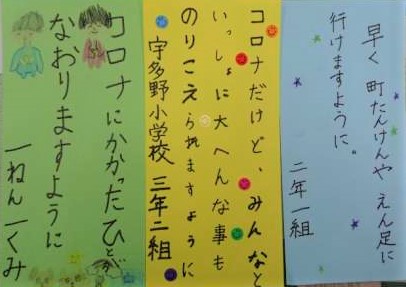 早く町たんけんや えん足に
行けますように。
二年一組
コロナだけど、みんなと
いっしょに大へんな事も
のりこえられますように
宇多野小学校 三年二組
コロナにかかったひとが
なおりますように
一ねん一くみ